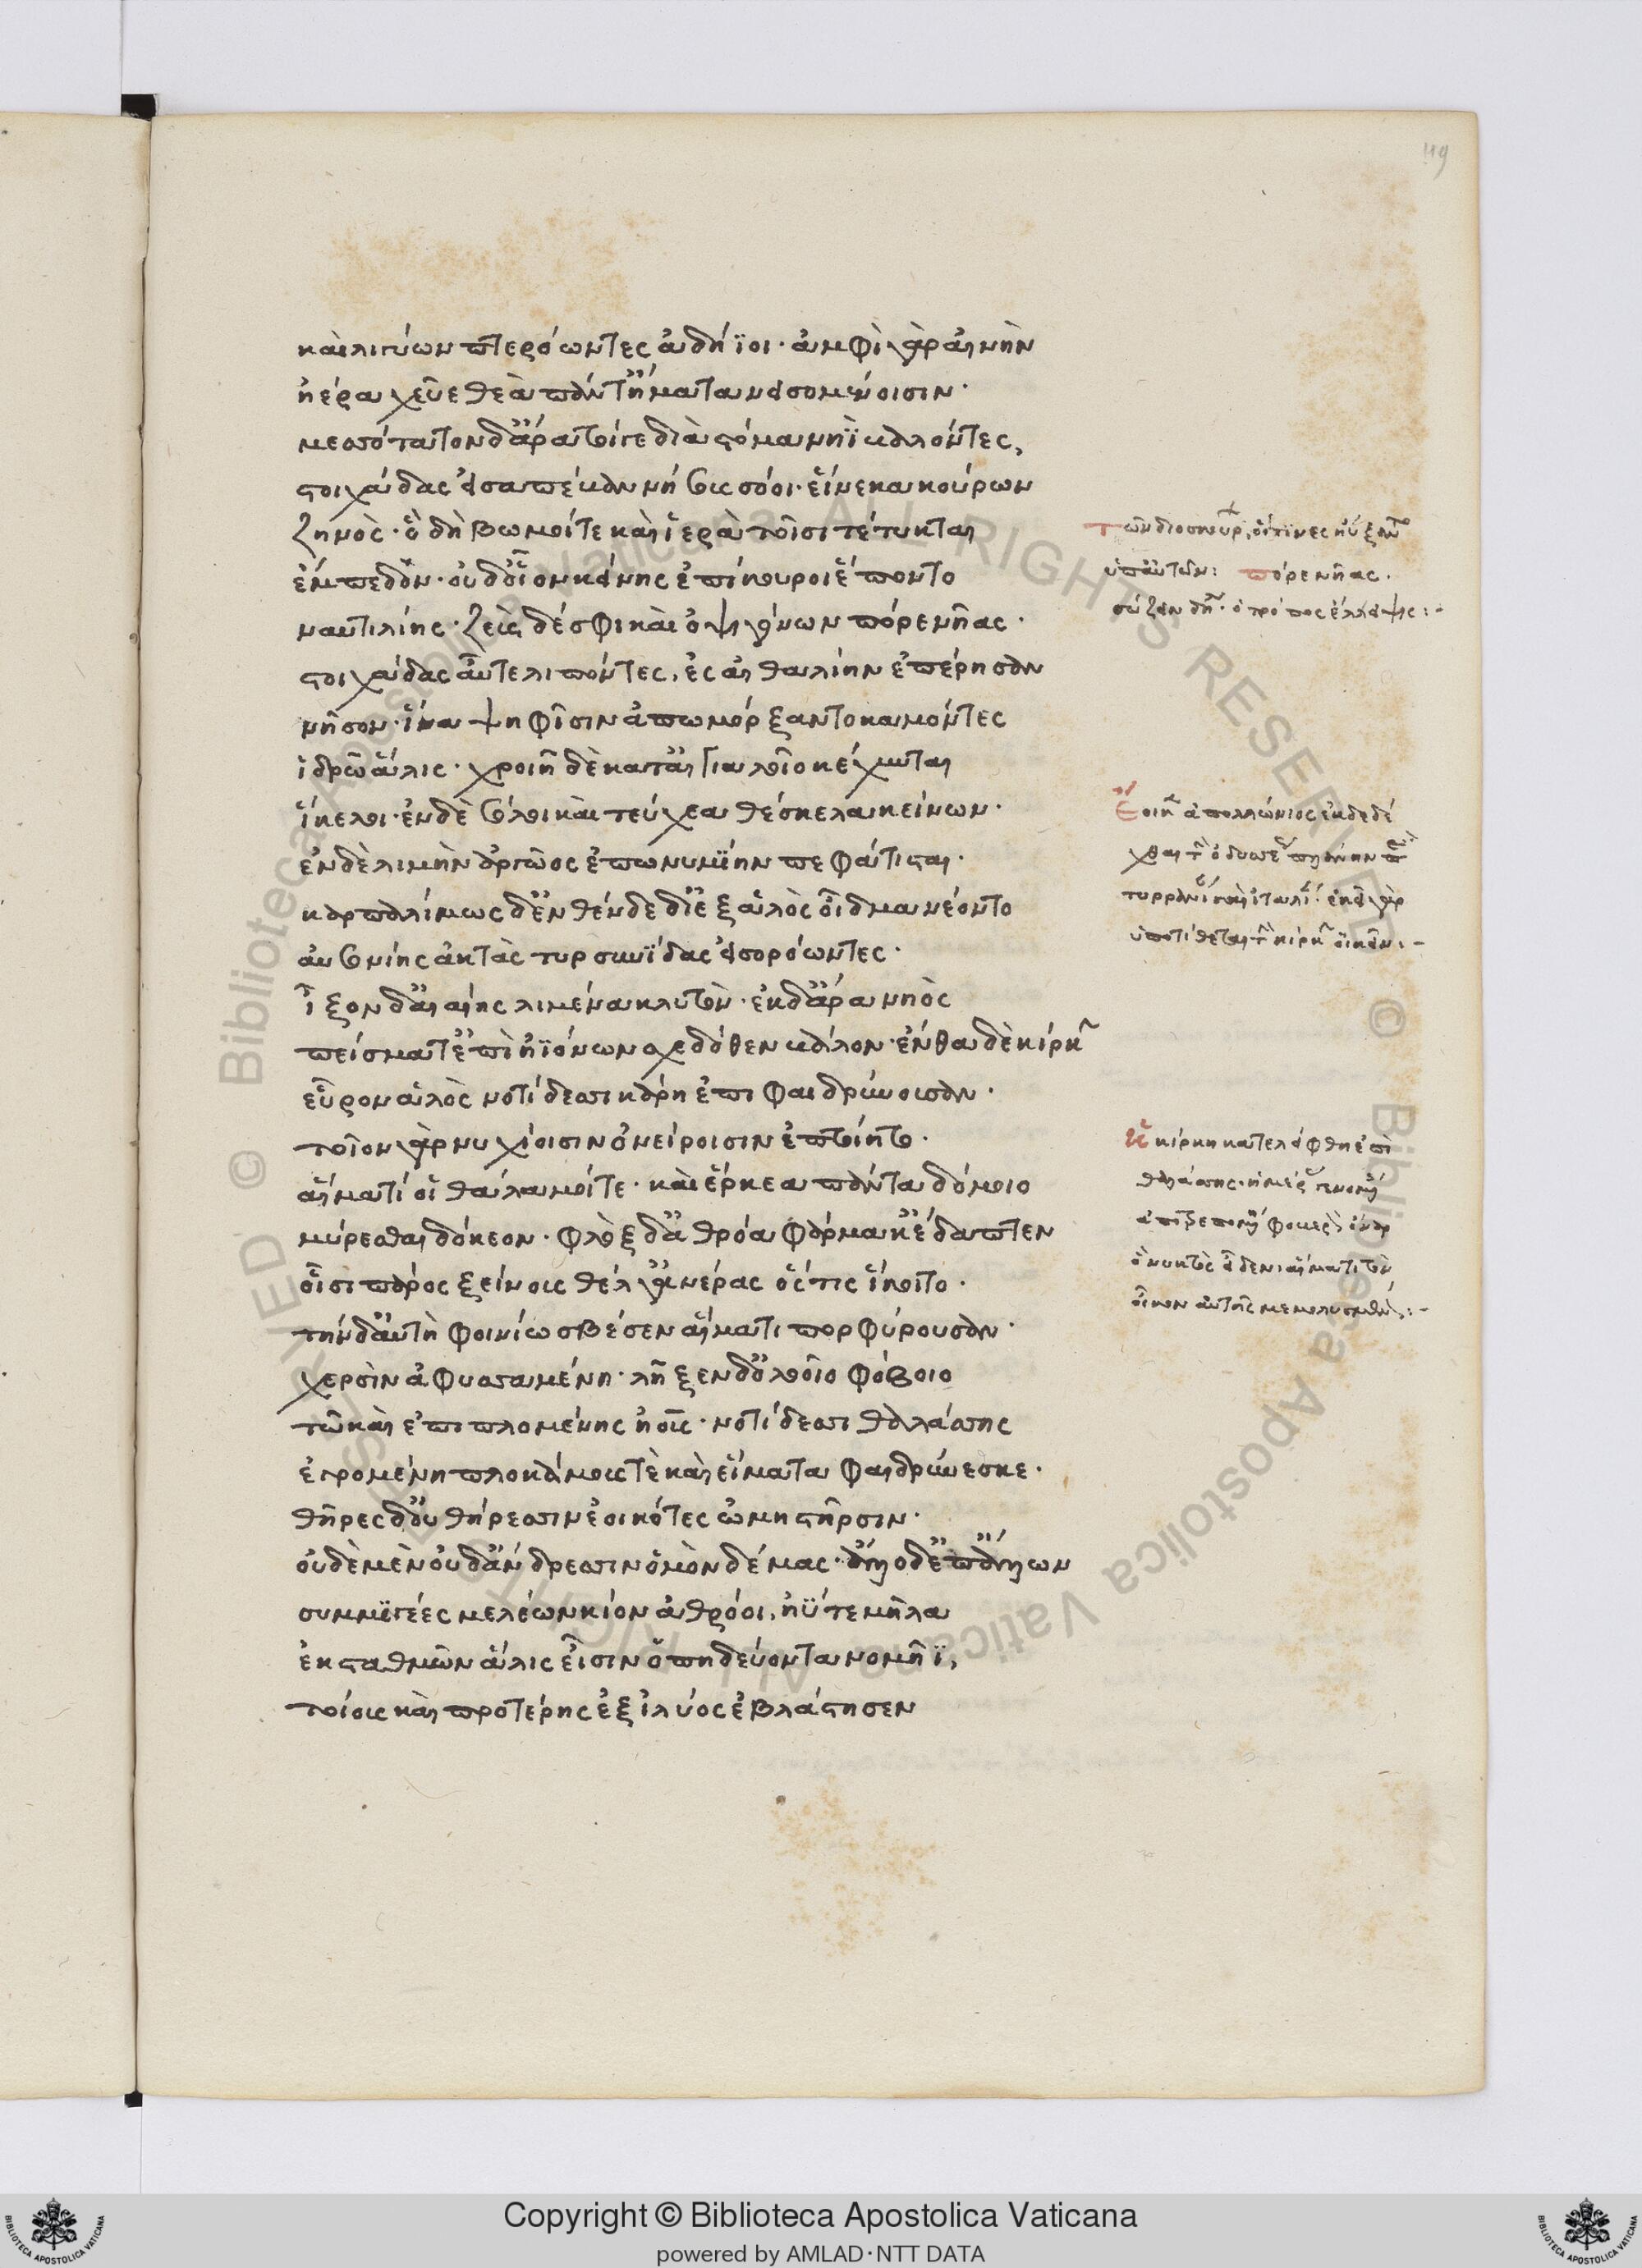 καὶ λιγύων περόωντες ἀδήϊοι· ἀμφὶ γὰρ αἰνὴν
ἠέρα χεῦε θεὰ πάντ' ἤματα νεισομένοισιν·
μεσσότατον δ' ἄρα τοίγε διὰ στόμα νηῒ βαλόντες,
στοιχάδας εἰσαπέβαν νήσους σόοι· εἵνεκα κούρων
ζηνὸς· ὃ δὴ βωμοί τε καὶ ἱερὰ τοῖσι τέτυκται
ἔμπεδον· οὐδ' οἷον κείνης ἐπίκουροι ἕποντο
ναυτιλίης· ζεὺς δέ σφι καὶ ὀψιγόνων πόρε νῆας·
στοιχάδας αὖτε λιπόντες, ἐς αἰθαλίην ἐπέρησαν
νῆσον· ἵνα ψηφῖσιν ἀπωμόρξαντο καμόντες
ἱδρῶ ἅλις· χροιῇ δὲ κατ' αἰγιαλοῖο κέχυνται
ἴκελοι· ἐν δὲ σόλοι καὶ τεύχεα θέσκελα κείνων·
ἐν δὲ λιμὴν ἀργῶος ἐπωνυμίην πεφάτισται·
καρπαλίμως δ' ἐνθένδε διὲξ ἁλὸς οἶδμα νέοντο
αὐσονίης ἀκτὰς τυρσηνίδας εἰσορόωντες·
ἷξον δ' αἰαίης λιμένα κλυτὸν· ἐκ δ' ἄρα νηὸς
πείσματ' ἐπὶ ἠϊόνων σχεδόθεν βάλον· ἔνθα δὲ κίρκην
εὗρον ἁλὸς νοτίδεσσι κάρη ἐπιφαιδρύνουσαν·
τοῖον γὰρ νυχίοισιν ὀνείροισιν ἐπτοίητο·
αἵματί οἱ θάλαμοί τε· καὶ ἕρκεα πάντα δόμοιο
μύρεσθαι δόκεον· φλὸξ δ' ἀθρόα φάρμακ' ἔδαπτεν
οἷσι πάρος ξείνους θέλγ' ἀνέρας ὅστις ἵκοιτο·
τὴν δ' αὐτὴ φονίω σβέσεν αἵματι πορφύρουσαν·
χερσὶν ἀφυσσαμένη· λῆξεν δ' ὀλοοῖο φόβοιο
τῶ καὶ ἐπιπλομένης ἠοῦς· νοτίδεσσι θαλάσσης
ἐγρομένη πλοκάμους τὲ καὶ εἵματα φαιδρύνεσκε·
θῆρες δ' οὐ θήρεσσιν ἐοικότες ὠμηστῆρσιν·
οὐδὲ μὲν οὐδ' ἄνδρεσσιν ὁμὸν δέμας· ἄλλο δ' ἐπ' ἄλλων
συμμιγέες μελέων κίον ἀθρόοι, ἠΰτε μῆλα
ἐκ σταθμῶν ἅλις εἶσιν ὀπηδεύοντα νομῆϊ,
τοίους καὶ προτέρης ἐξ ἰλύος ἐβλάστησεν
Τῶν διοσκούρ, οἵτινες
ὑπ' αὐτῶν: πόρε νῆας.
σώζειν δηλ· ὁ τρόπος ἔλλειψις:-
Ἔοικεν ἀπολλώνιος ἐκδεδέ
χθαι τὴν ὀδυσσέως πλάνην περὶ
τυρρηνίαν καὶ ἰταλίαν· ἐκεῖ γὰρ
ὑποτίθεται τὴν κίρκην οἰκεῖν:-
Ἡ κίρκη κατελείφθη ἐπὶ
θαλάσσης· ἡμέρας γενομένης
φοβερὸν ὄναρ
ὃ νυκτὸς εἶδεν· αἵματι τὸν
οἶκον αὐτῆς μεμολυσμένον:-
119
Copyright © Biblioteca Apostolica Vaticana
powered by AMLAD·NTT DATA